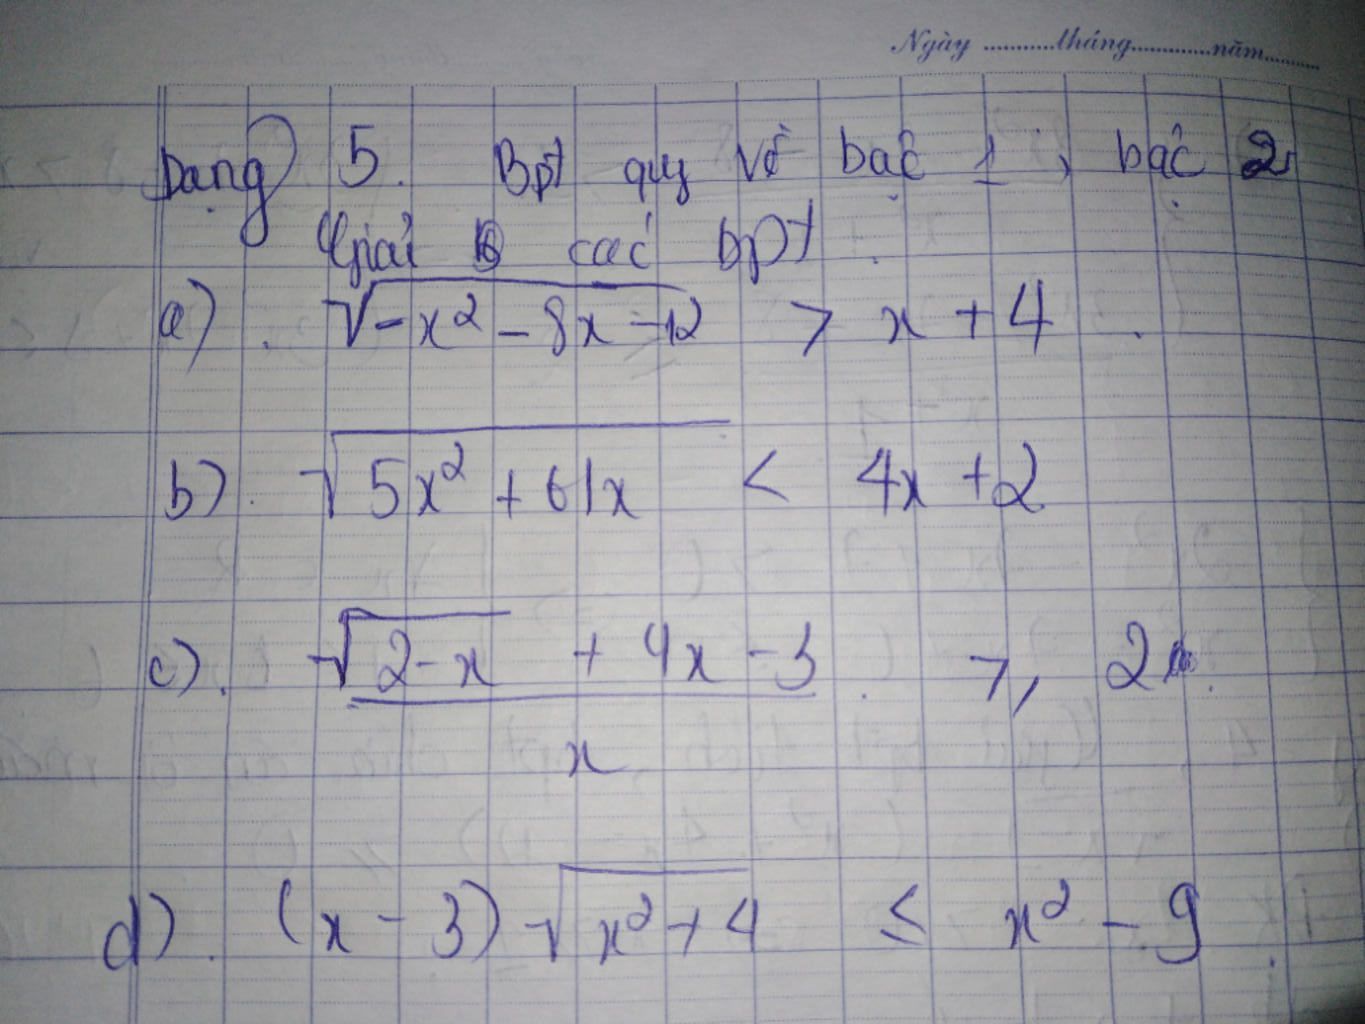 Ngày ............tháng............năm..........
Dạng 5. Bpt quy về bậc 1, bậc 2
Giải các bpt
a) √(-x² - 8x - 12) > x + 4
b) √(5x² + 61x) < 4x + 2
c) (√(2-x) + 4x - 3) / x ≥ 2
d) (x - 3)√(x² + 4) ≤ x² - 9